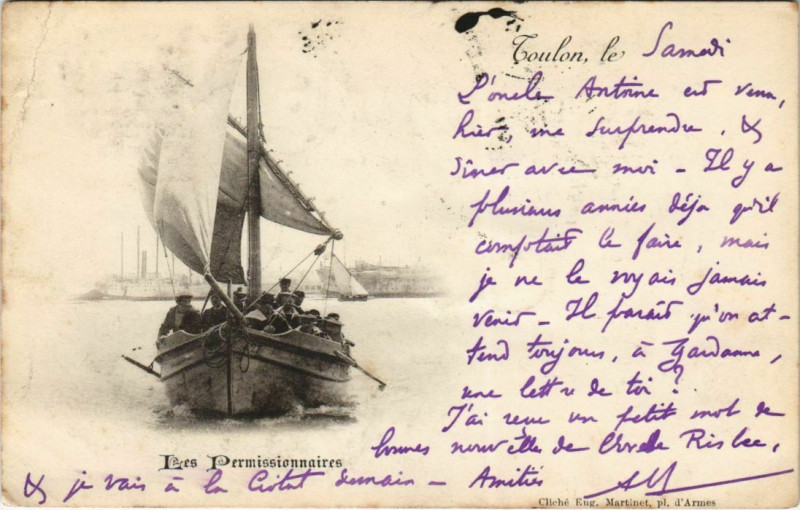 Toulon, le Samedi
L'oncle Antoine est venu,
hier, me surprendre, &
dîner avec moi - Il y a
plusieurs années déja qu'il
comptait le faire, mais
je ne le voyais jamais
venir - Il paraît qu'on at-
tend toujours, à Gardanne,
une lettre de toi ?
J'ai reçu un petit mot de
bonnes nouvelles de
& je vais à la Ciotat demain - Amitiés
Les Permissionnaires
Cliché Eug. Martinet, pl. d'Armes